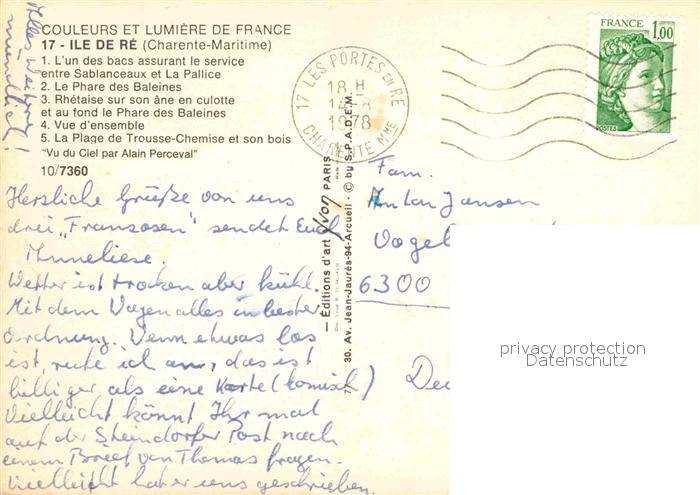 Alles Weitere
mündlich!
COULEURS ET LUMIÈRE DE FRANCE
17 - ILE DE RÉ (Charente-Maritime)
1. L'un des bacs assurant le service
entre Sablanceaux et La Pallice
2. Le Phare des Baleines
3. Rhétaise sur son âne en culotte
et au fond le Phare des Baleines
4. Vue d'ensemble
5. La Plage de Trousse-Chemise et son bois
"Vu du Ciel par Alain Perceval"
10/7360
Herzliche Grüße von uns
drei „Franzosen" sendet Euch
Anneliese.
Wetter ist trocken aber kühl.
Mit dem Wagen alles in bester
Ordnung. Wenn etwas los
ist, rufe ich an, das ist
billiger als eine Karte (komisch)
Vielleicht könnt Ihr mal
auf der Steindorfer Post nach
einem Brief von Thomas fragen.
Vielleicht hat er uns geschrieben.
— Éditions d'art Yvon PARIS
30. Av. Jean-Jaurès-94-Arcueil - © by S.P.A.D.E.M.
17 LES PORTES EN RE
18 H
14-8
1978
CHARENTE MME
FRANCE
1,00
POSTES
Fam.
Anton Jansen
Vogel
6300
privacy protection
Datenschutz